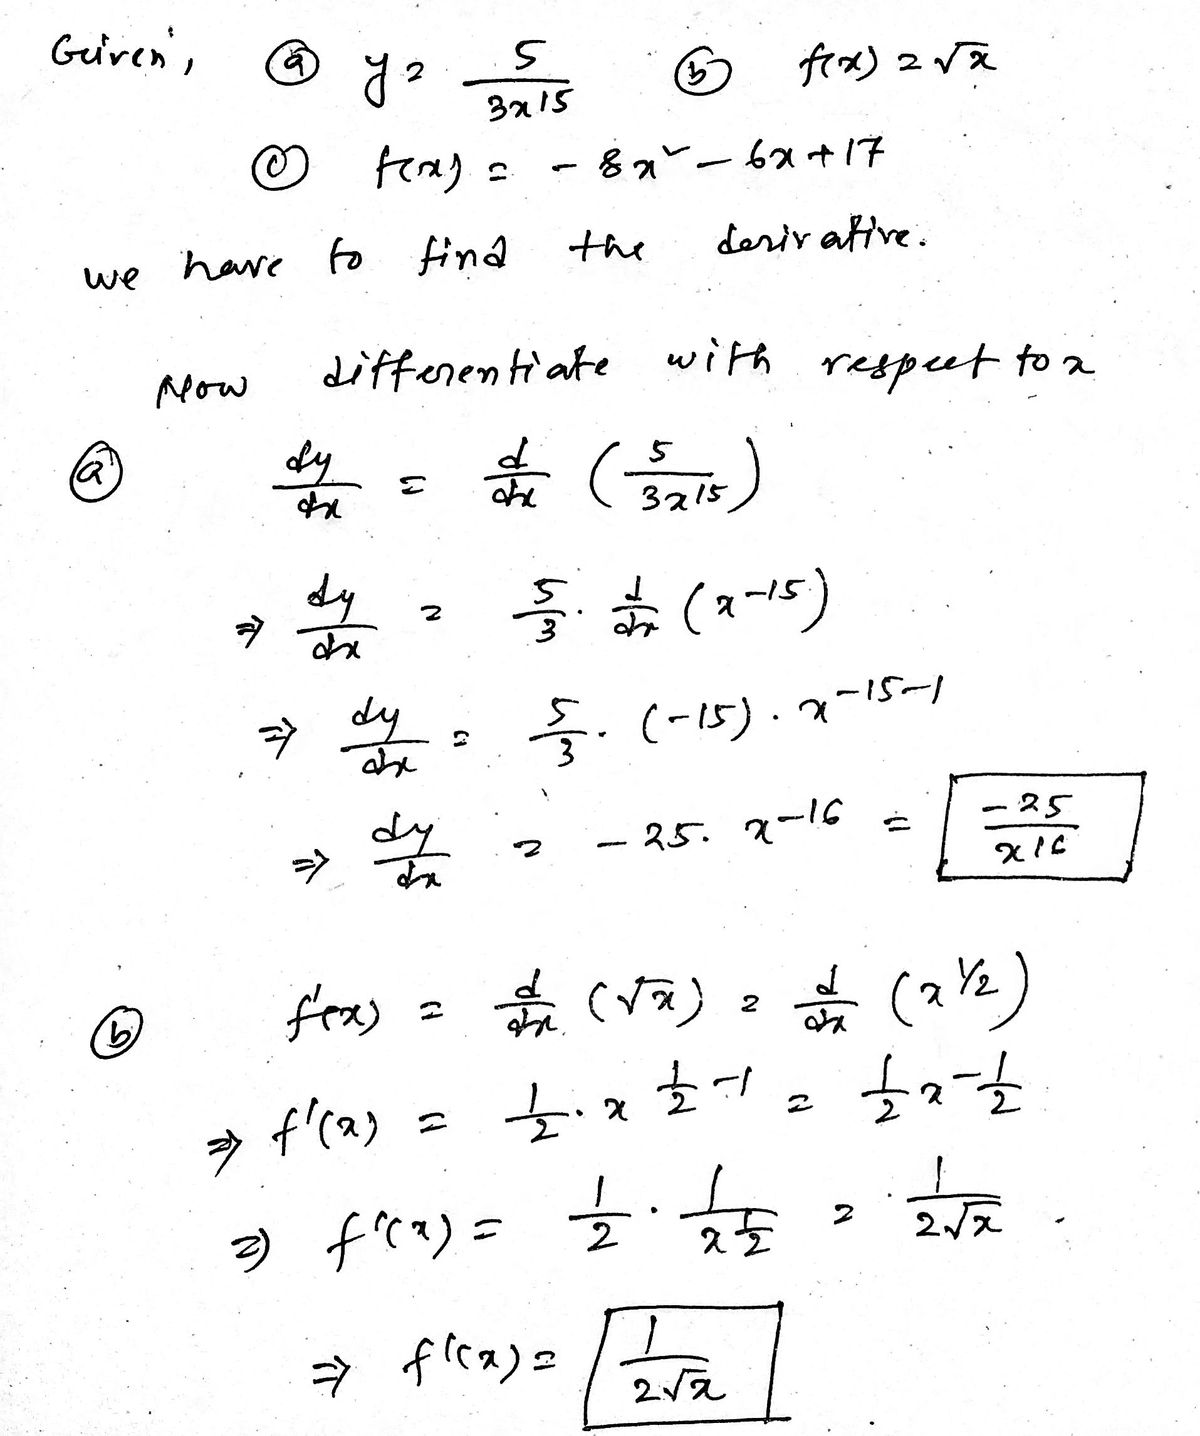 Given, ⓐ y = 5/(3x15) ⓑ f(x) = √x
ⓒ f(x) = - 8x² - 6x + 17
we have to find the derivative.
Now differentiate with respect to x
ⓐ dy/dx = d/dx (5/(3x15))
⇒ dy/dx = 5/3 · d/dx (x-15)
⇒ dy/dx = 5/3 · (-15) · x^(-15-1)
⇒ dy/dx = - 25. x-16 = -25/(x16)
ⓑ f'(x) = d/dx (√x) = d/dx (x^(1/2))
⇒ f'(x) = 1/2 · x^(1/2 - 1) = 1/2 x^(-1/2)
⇒ f'(x) = 1/2 · 1/(x^(1/2)) = 1/(2√x) .
⇒ f'(x) = 1/(2√x)